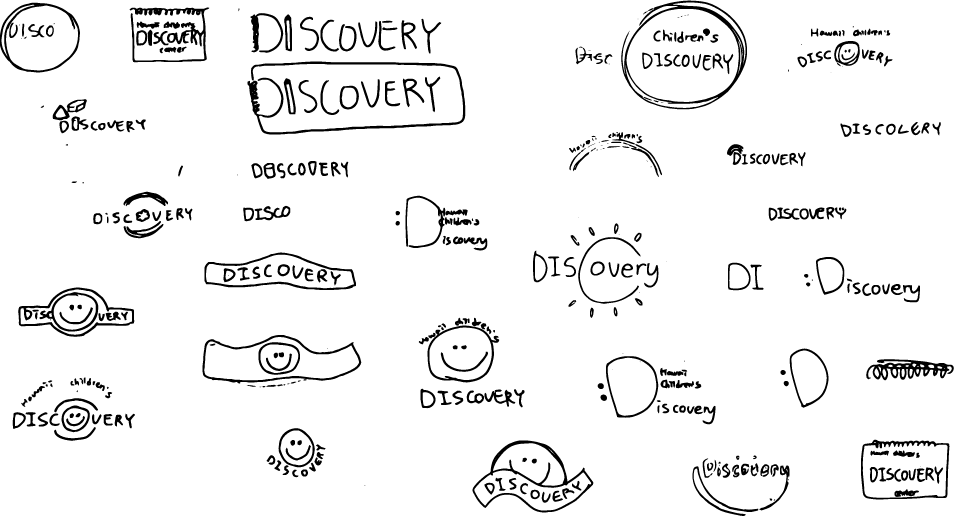 DISCO
Hawaii children's
DISCOVERY
center
DISCOVERY
DISCOVERY
Disc
Children's
DISCOVERY
Hawaii children's
DISC VERY
DISCOVERY
DISCOLERY
Hawaii children's
DISCOVERY
DISCOVERY
DISCOVERY
DISCO
:D
Hawaii
Children's
iscovery
DISCOVERY
DISCOVERY
DIScovery
DI
:Discovery
DISC VERY
Hawaii children's
DISCOVERY
:D
Hawaii
Children's
iscovery
:D
Hawaii children's
DISC VERY
DISCOVERY
DISCOVERY
Discovery
Hawaii children's
DISCOVERY
center